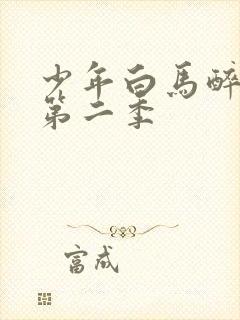 少年白马醉
第二季
富成